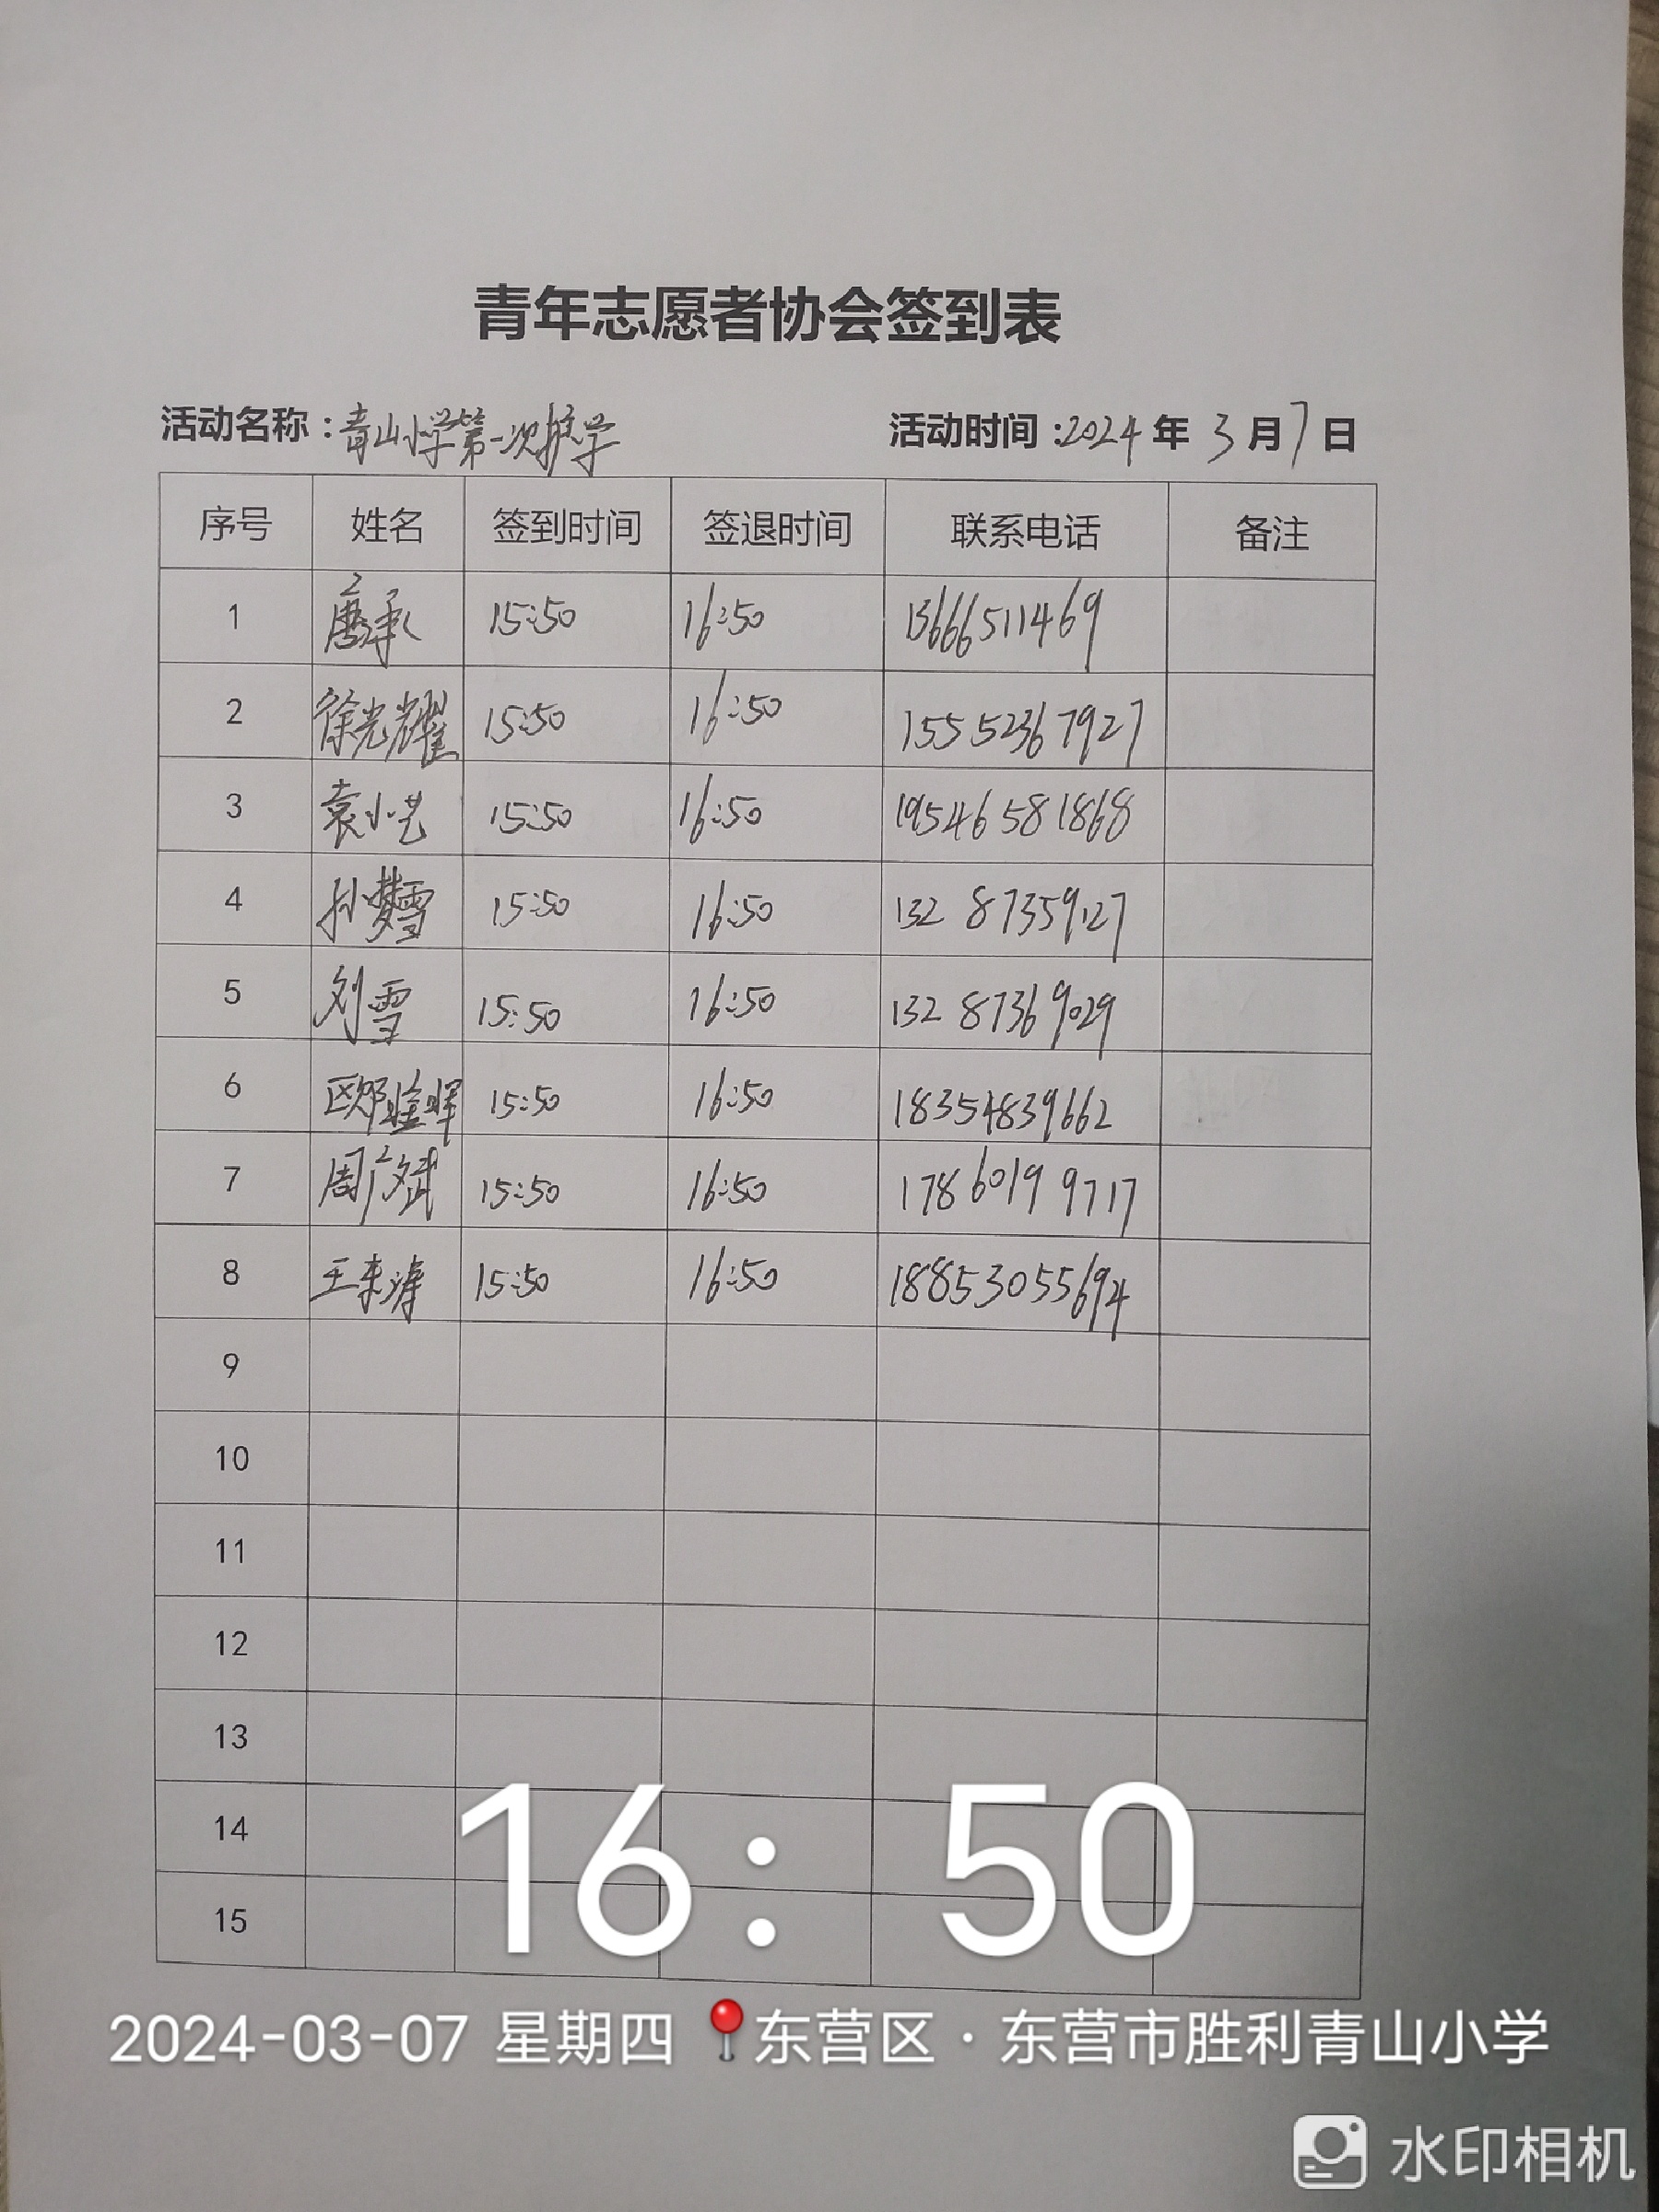 青年志愿者协会签到表
活动名称：青山小学第一次护学 活动时间：2024年3月7日
序号 姓名 签到时间 签退时间 联系电话 备注
1 唐承 15:50 16:50 13666511469
2 徐光耀 15:50 16:50 15552367927
3 袁小艺 15:50 16:50 19546581868
4 孙梦雪 15:50 16:50 132 87359127
5 刘雪 15:50 16:50 132 87369029
6 15:50 16:50 18354839662
7 周广斌 15:50 16:50 178 6019 9717
8 王来涛 15:50 16:50 18853055694
9
10
11
12
13
14
15
16:50
2024-03-07 星期四 东营区·东营市胜利青山小学
水印相机